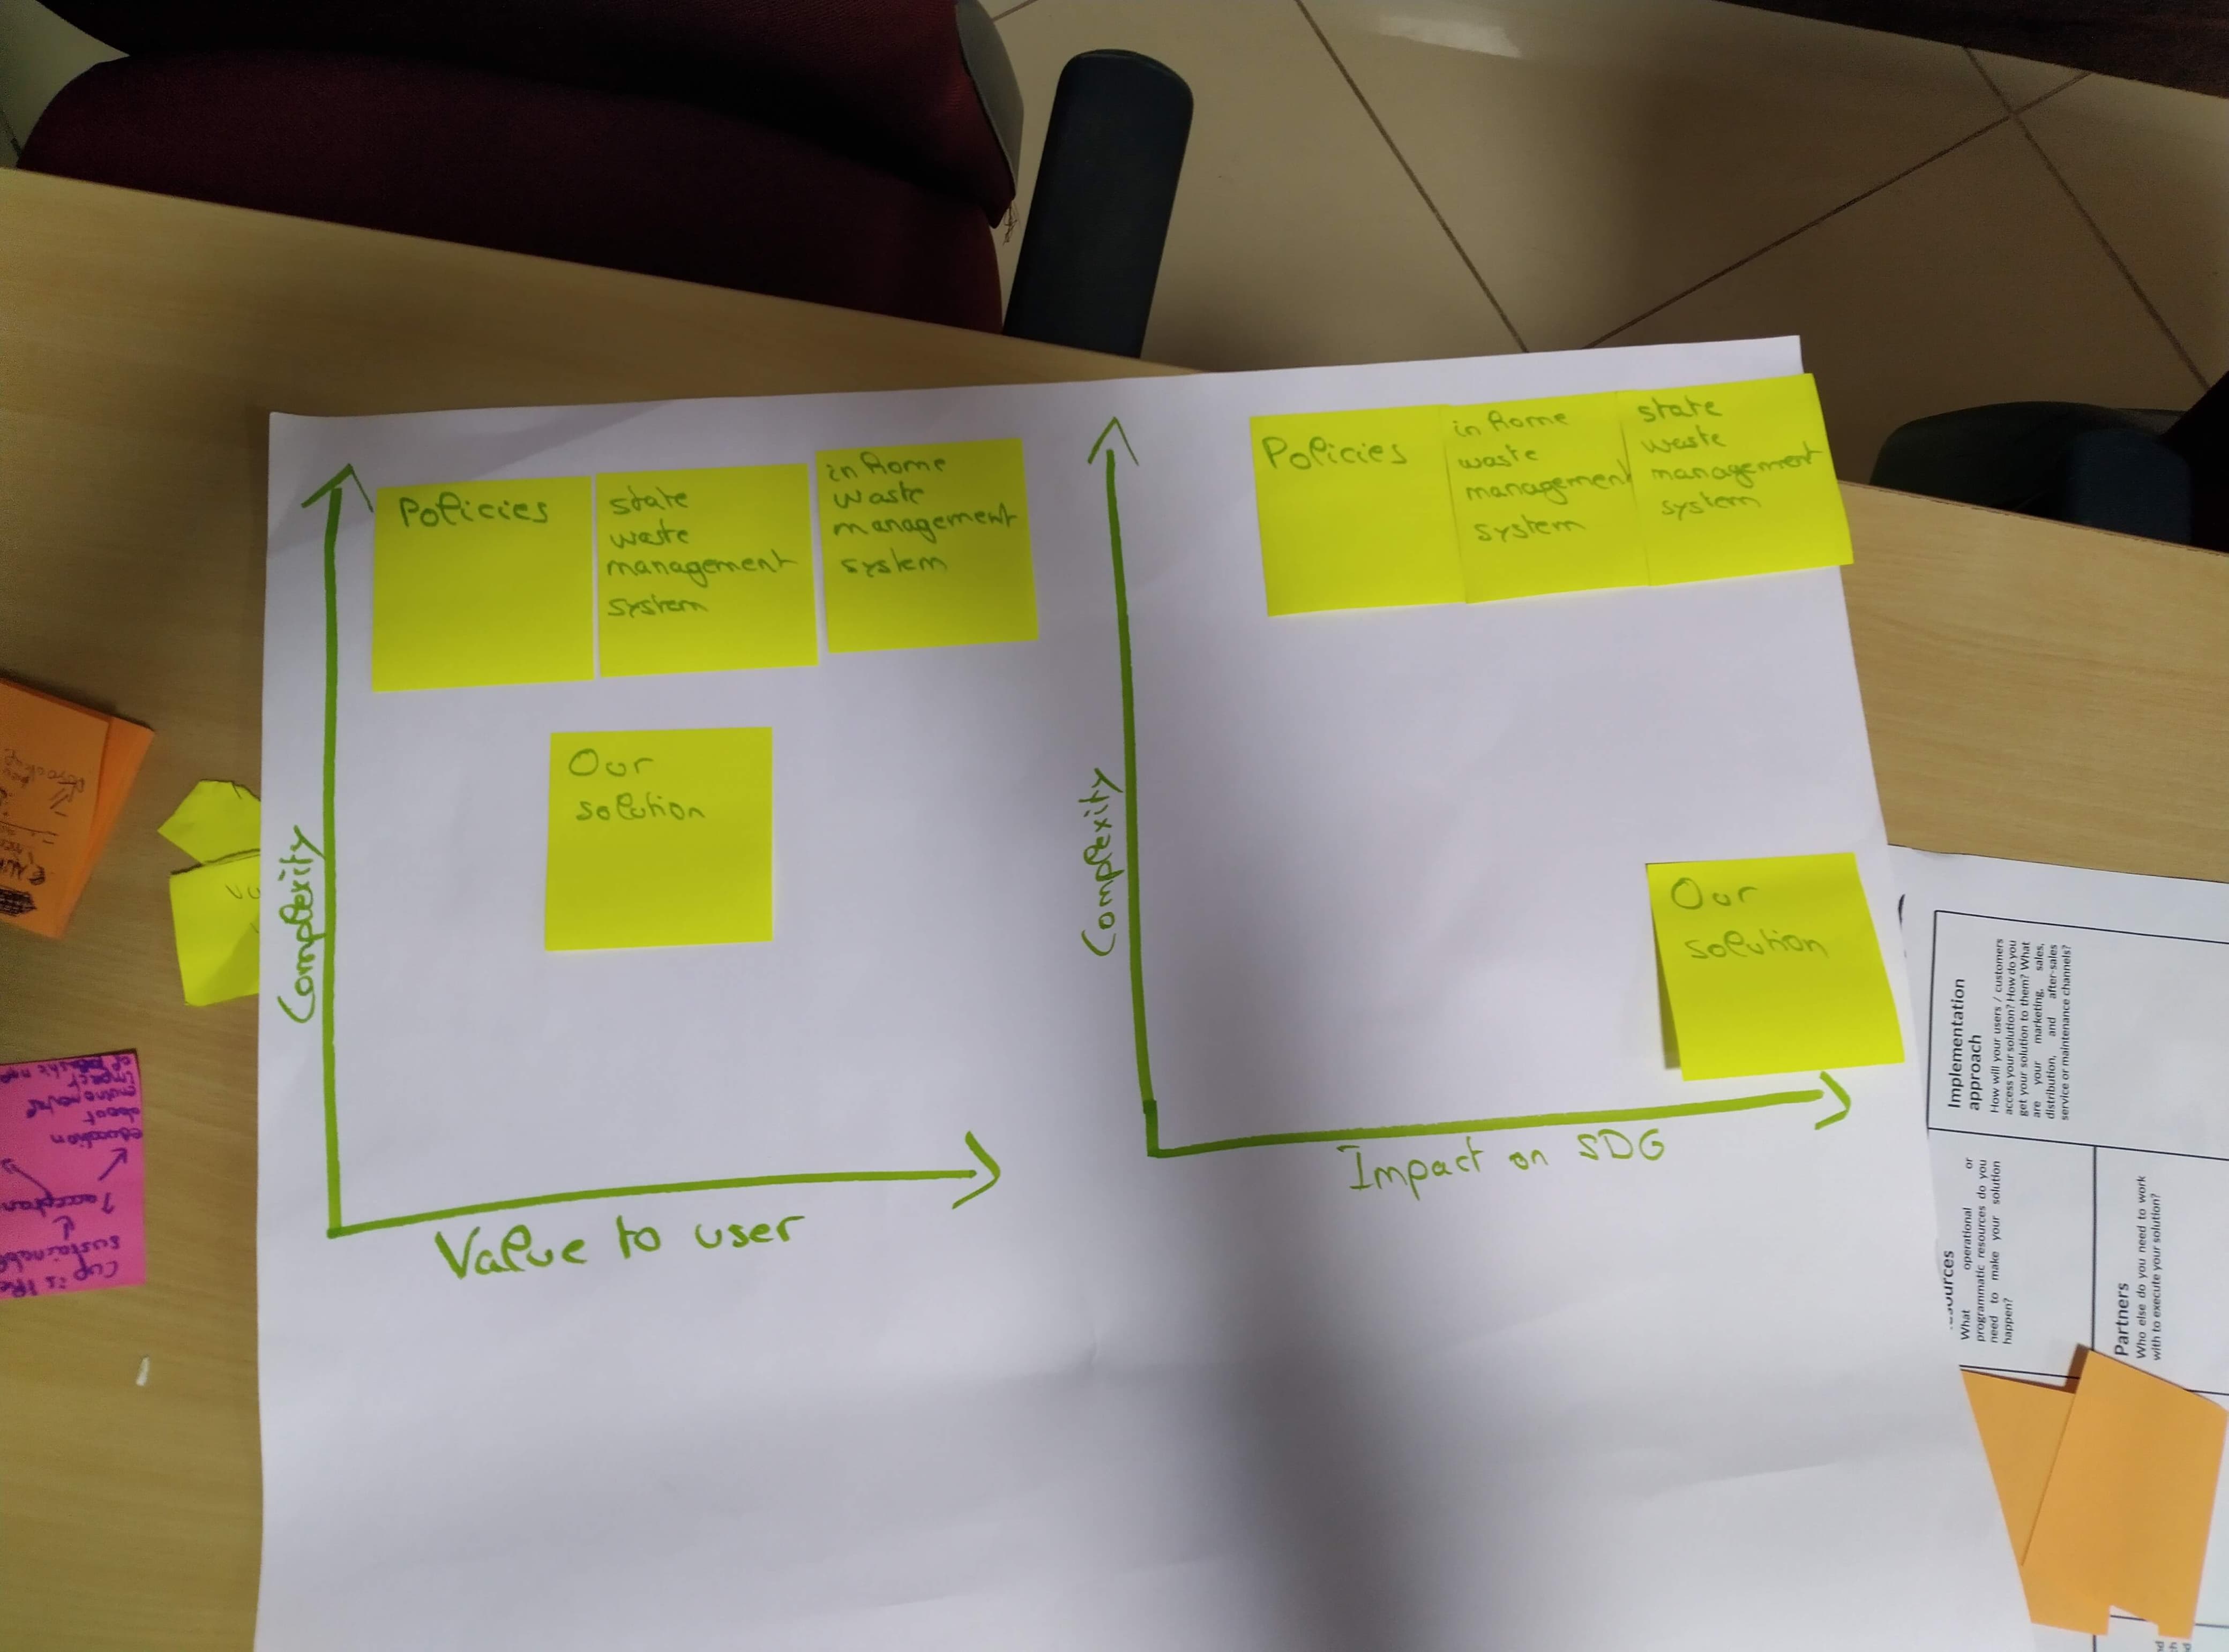 Policies
state
waste
management
system
in home
waste
management
system
Our
solution
Complexity
Value to user
Policies
in home
waste
management
system
state
waste
management
system
Our
solution
Complexity
Impact on SDG
Implementation
approach
How will your users / customers
access your solution? How do you
get your solution to them? What
are your marketing, sales,
distribution, and after-sales
service or maintenance channels?
What operational or
programmatic resources do you
need to make your solution
happen?
Partners
Who else do you need to work
with to execute your solution?
cup is the
sustainable
education
about